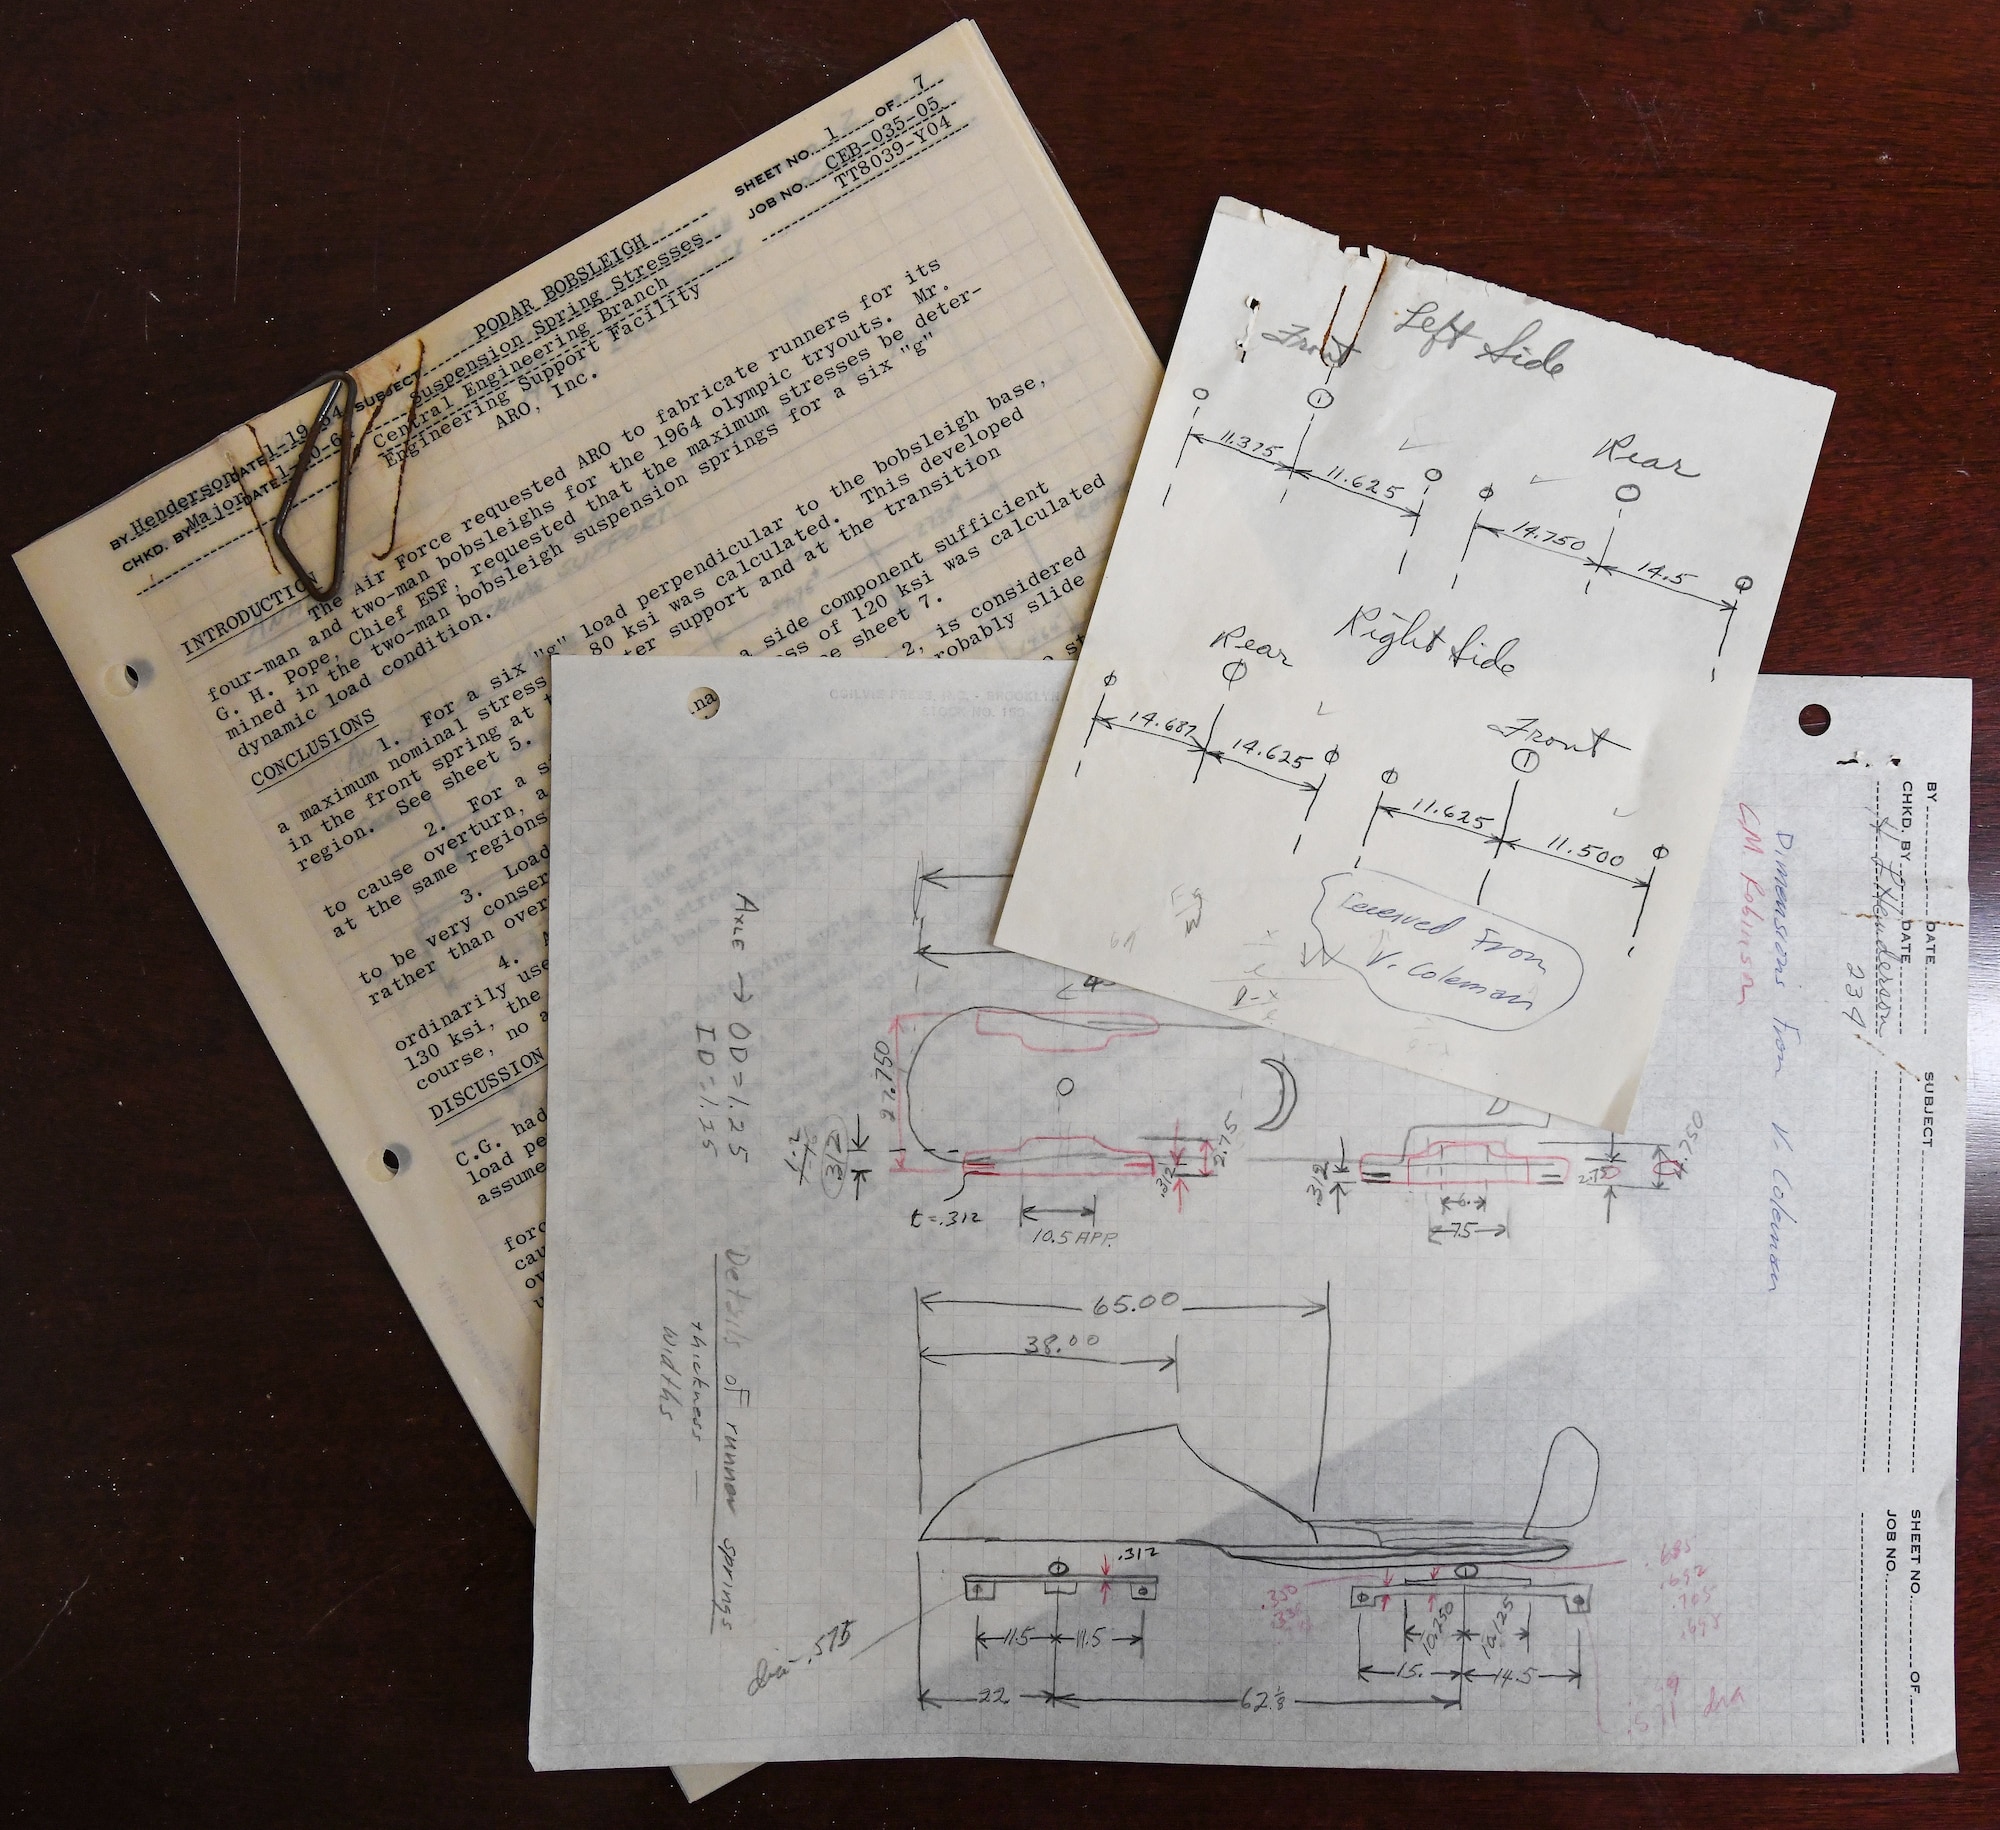 SHEET NO. 1 OF 7
JOB NO. CEB-035-05
TT8039-Y04
BY Henderson DATE 1-19-64 SUBJECT PODAR BOBSLEIGH
CHKD. BY Major DATE Suspension Spring Stresses
Central Engineering Branch
Engineering Support Facility
ARO, Inc.
INTRODUCTION
The Air Force requested ARO to fabricate runners for its
four-man and two-man bobsleighs for the 1964 olympic tryouts. Mr.
G. H. Pope, Chief ESF, requested that the maximum stresses be deter-
mined in the two-man bobsleigh suspension springs for a six "g"
dynamic load condition.
CONCLUSIONS
1. For a six "g" load perpendicular to the bobsleigh base,
a maximum nominal stress 80 ksi was calculated. This developed
in the front spring at ter support and at the transition
region. See sheet 5.
2. For a si a side component sufficient
to cause overturn, a ss of 120 ksi was calculated
at the same regions e sheet 7.
3. Load 2, is considered
to be very conser robably slide
rather than over
4.
ordinarily use
130 ksi, the
course, no a
DISCUSSION
C.G. had
load pe
assume
forc
cau
ov
Left Side
Front
11.375
11.625
Rear
14.750
14.5
Right Side
Rear
14.687
14.625
Front
11.625
11.500
received From
V. Coleman
BY DATE SUBJECT SHEET NO. OF
CHKD. BY DATE JOB NO.
H. Henderson
234
Dimensions From V. Coleman
G.M. Robinson
na
OGILVIE PRESS, INC. - BROOKLYN
STOCK NO. 150
AXLE → OD = 1.25
ID = 1.15
Details of runner springs
thickness
widths
27.750
.312
t = .312
10.5 APP.
.312
2.75
.312
6.
7.5
2.75
4.750
65.00
38.00
.312
11.5
11.5
10.250
10.125
15.
14.5
22.
62 1/8
dia .575
.350
.685
.692
.705
.695
.571 dia